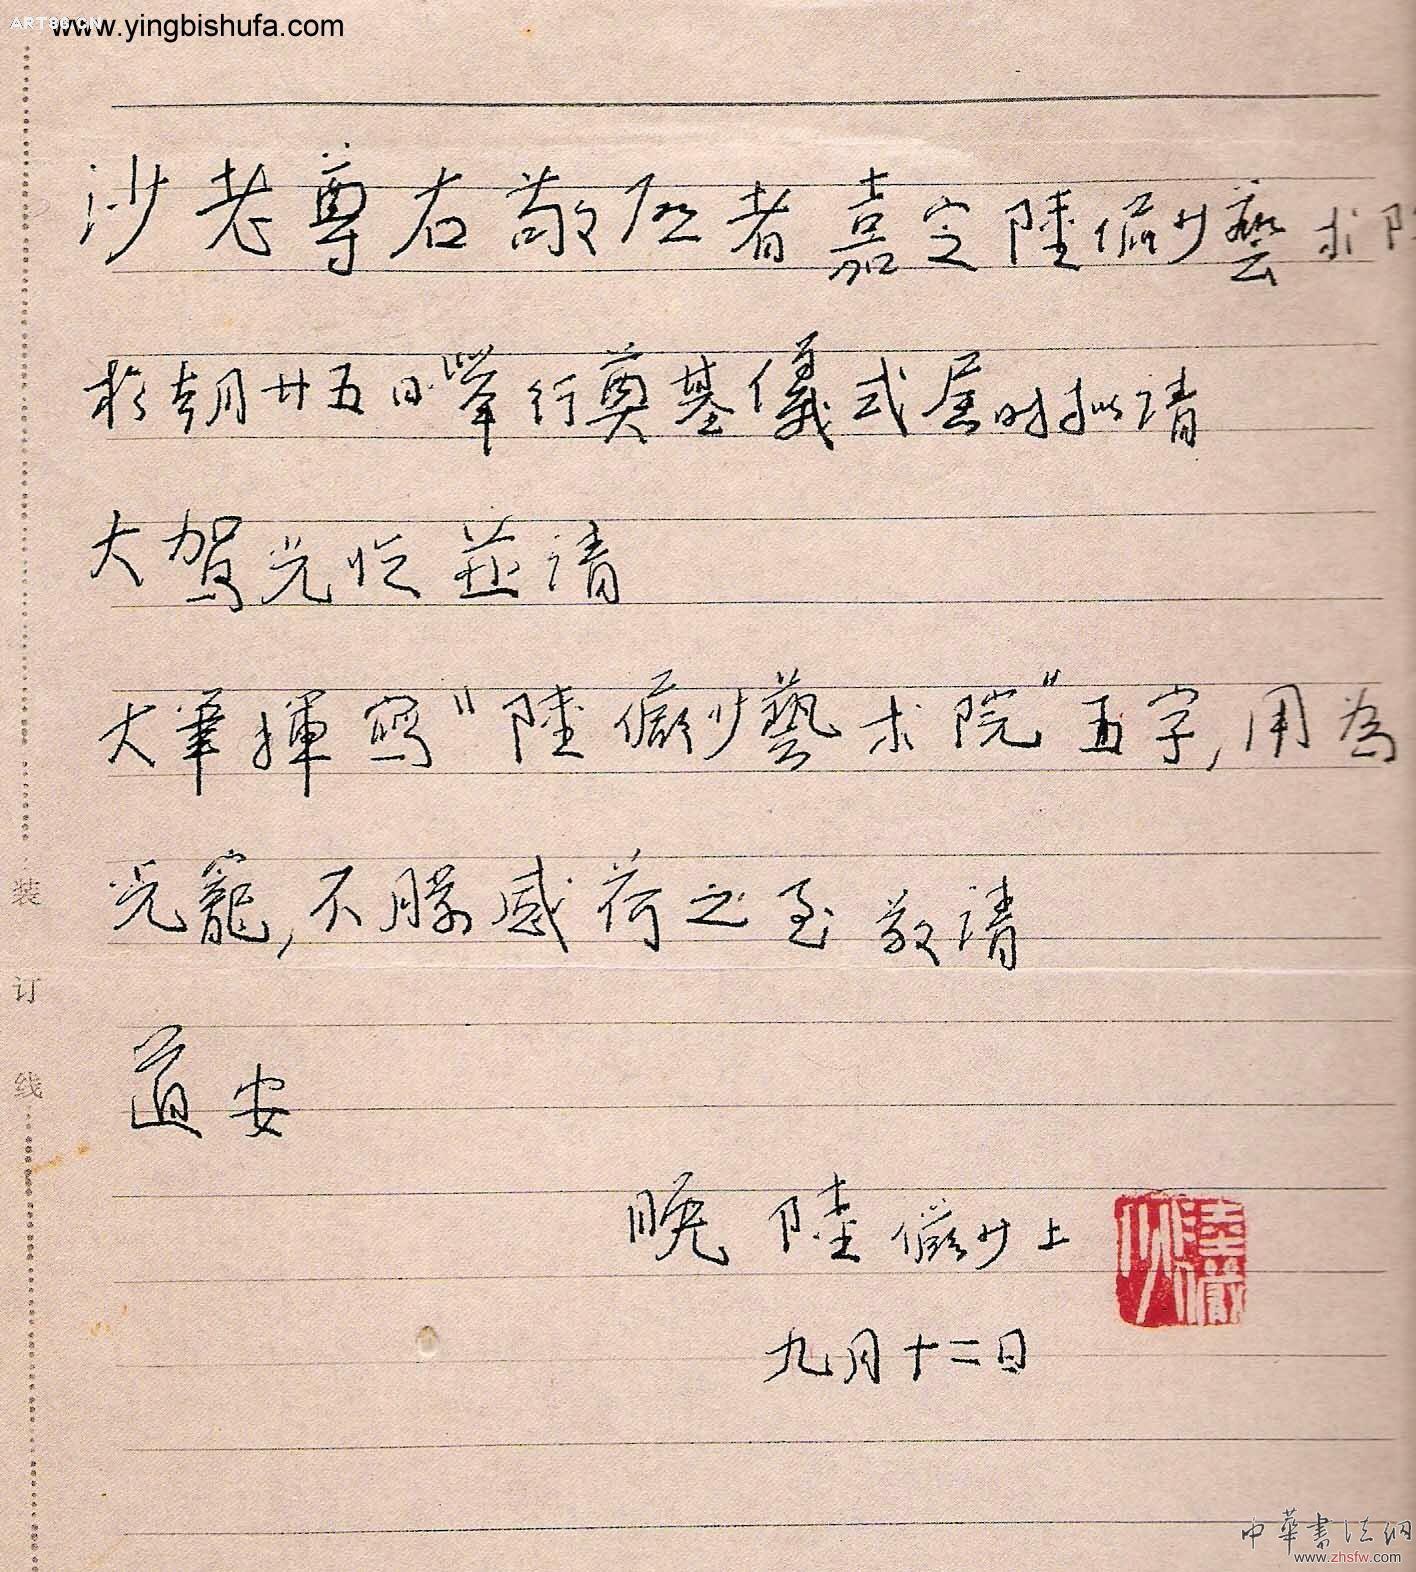 ART86.CN
www.yingbishufa.com
沙老尊右敬啟者嘉定陸儼少藝术院
於本月廿五日舉行奠基儀式届时拟请
大駕光临並请
大筆揮寫"陸儼少藝术院"五字,用為
光寵,不勝感荷之至敬请
道安
晚陸儼少上
陸儼少
九月十二日
装订线
中華書法網
www.zhsfw.com